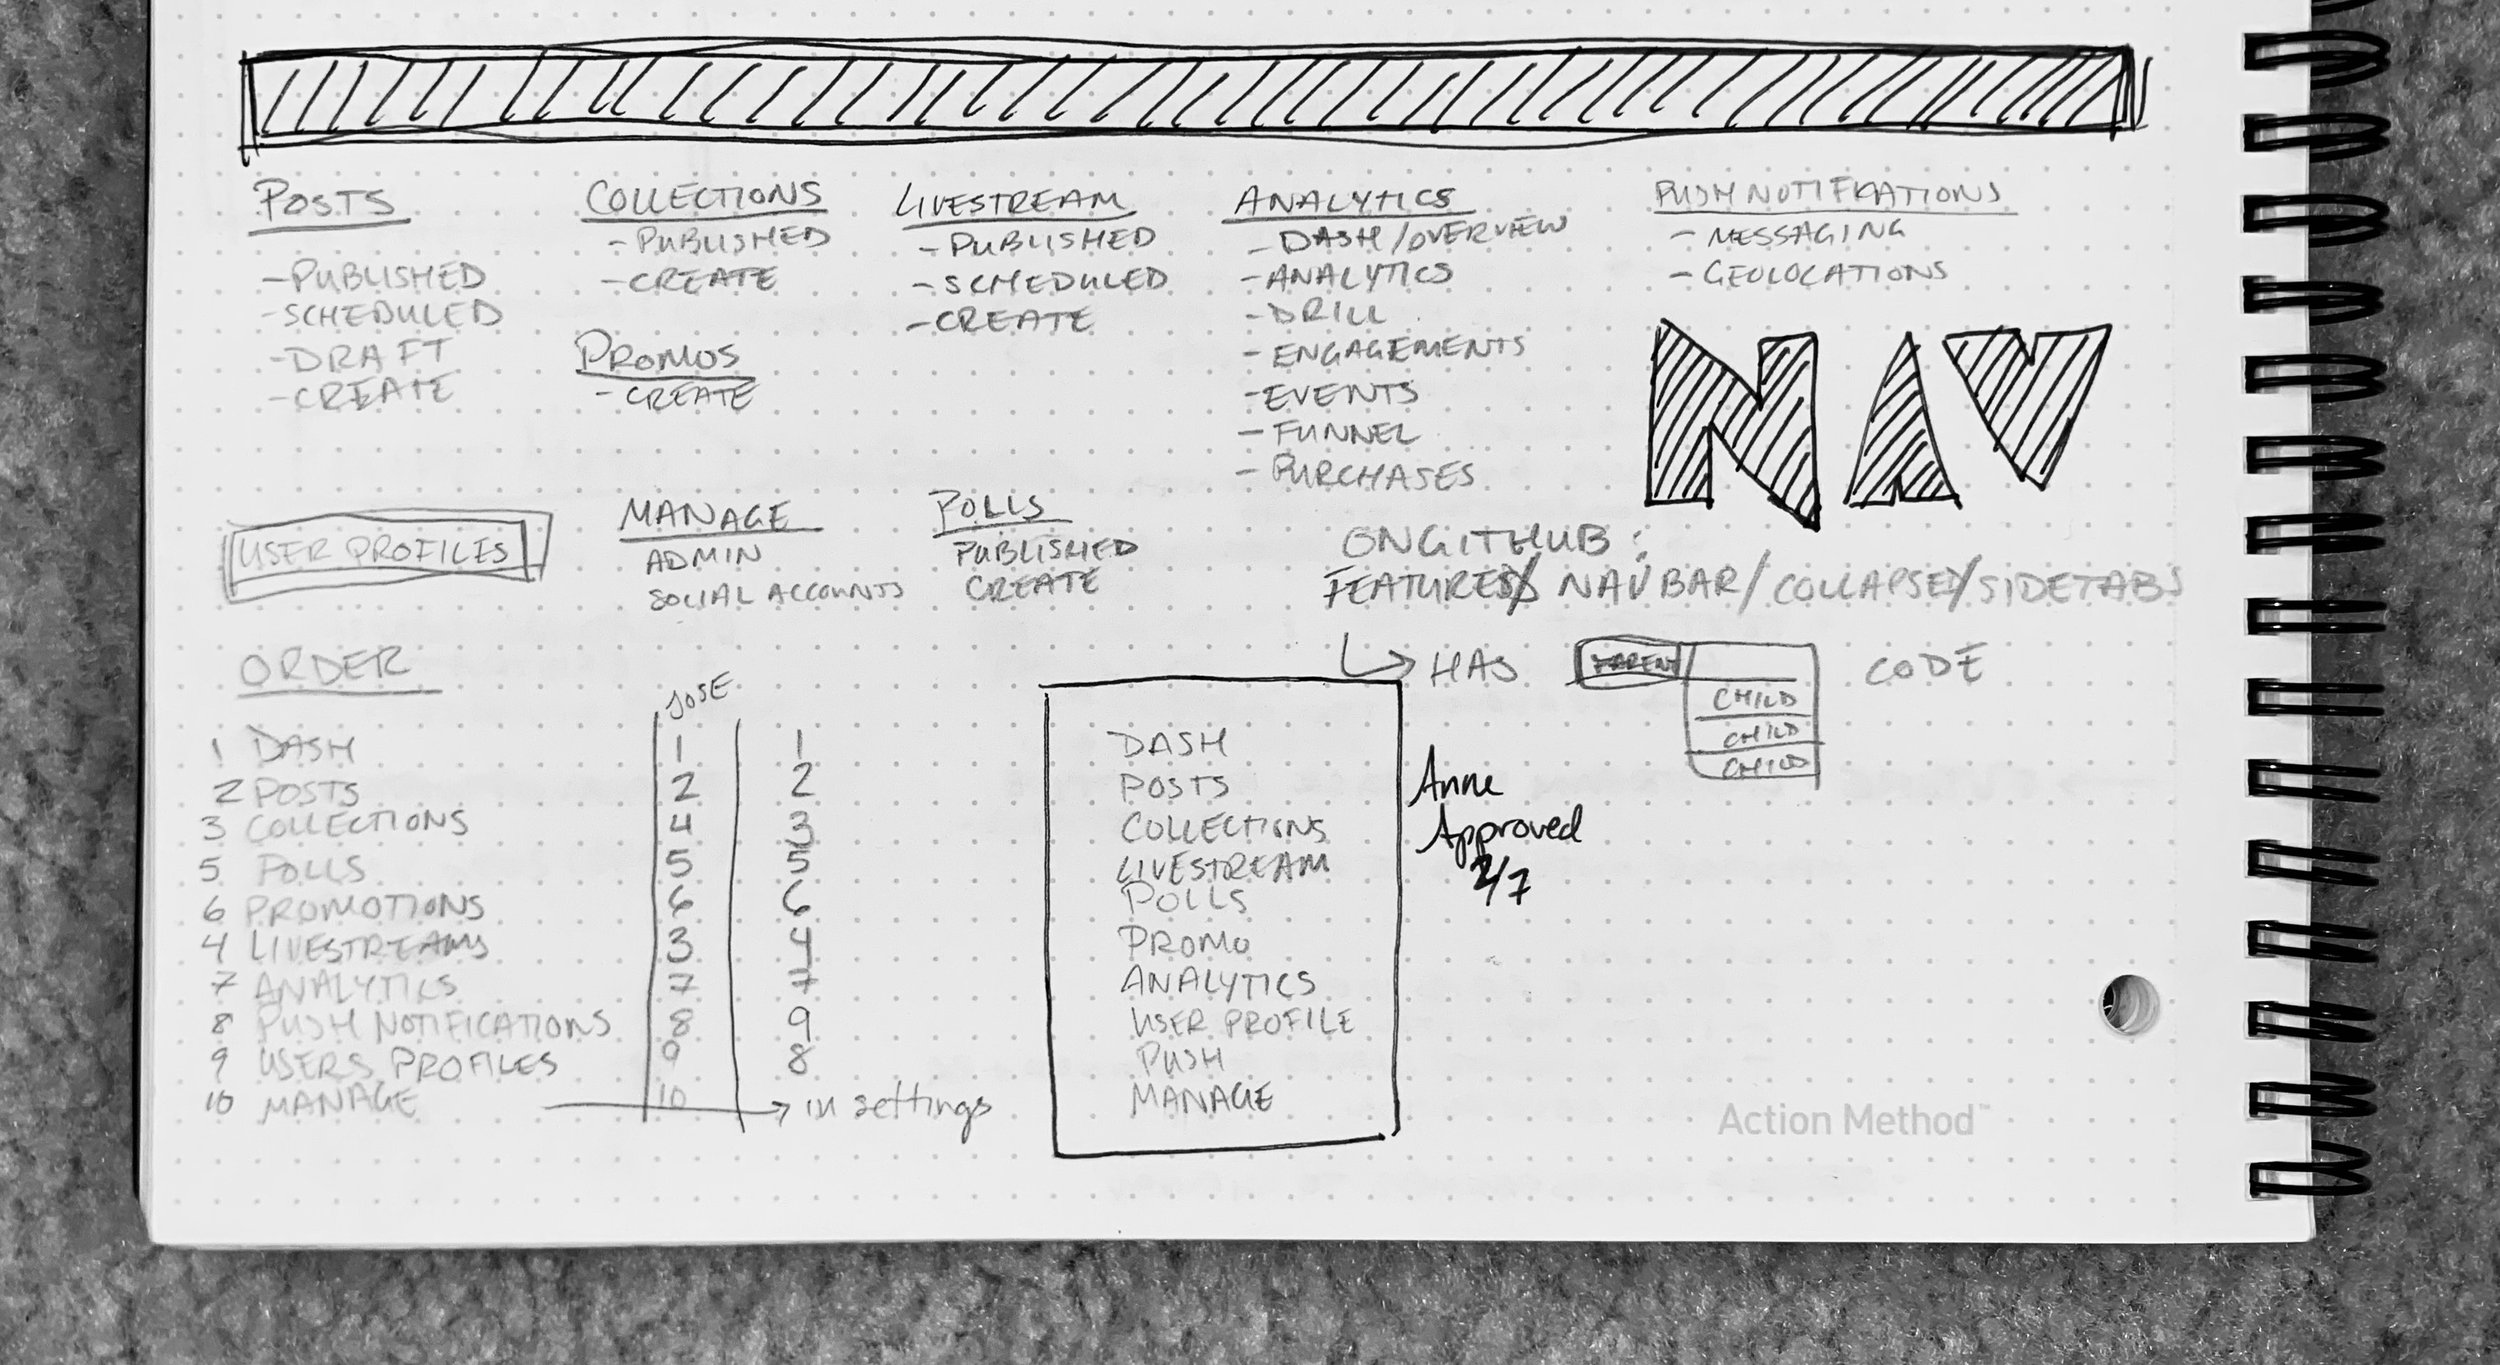 POSTS
- PUBLISHED
- SCHEDULED
- DRAFT
- CREATE
COLLECTIONS
- PUBLISHED
- CREATE
PROMOS
- CREATE
LIVESTREAM
- PUBLISHED
- SCHEDULED
- CREATE
ANALYTICS
- DASH/OVERVIEW
- ANALYTICS
- DRILL
- ENGAGEMENTS
- EVENTS
- FUNNEL
- PURCHASES
PUSH NOTIFICATIONS
- MESSAGING
- GEOLOCATIONS
NAV
USER PROFILES
MANAGE
ADMIN
SOCIAL ACCOUNTS
POLLS
PUBLISHED
CREATE
ON GITHUB:
FEATURES/ NAVBAR/COLLAPSED/SIDETABS
→ HAS PARENT CODE
CHILD
CHILD
CHILD
ORDER
JOSE
1 DASH 1 1
2 POSTS 2 2
3 COLLECTIONS 4 3
5 POLLS 5 5
6 PROMOTIONS 6 6
4 LIVESTREAMS 3 4
7 ANALYTICS 7 7
8 PUSH NOTIFICATIONS 8 9
9 USERS PROFILES 9 8
10 MANAGE 10 → in settings
DASH
POSTS
COLLECTIONS
LIVESTREAM
POLLS
PROMO
ANALYTICS
USER PROFILE
PUSH
MANAGE
Anne
Approved
2/7
Action Method™